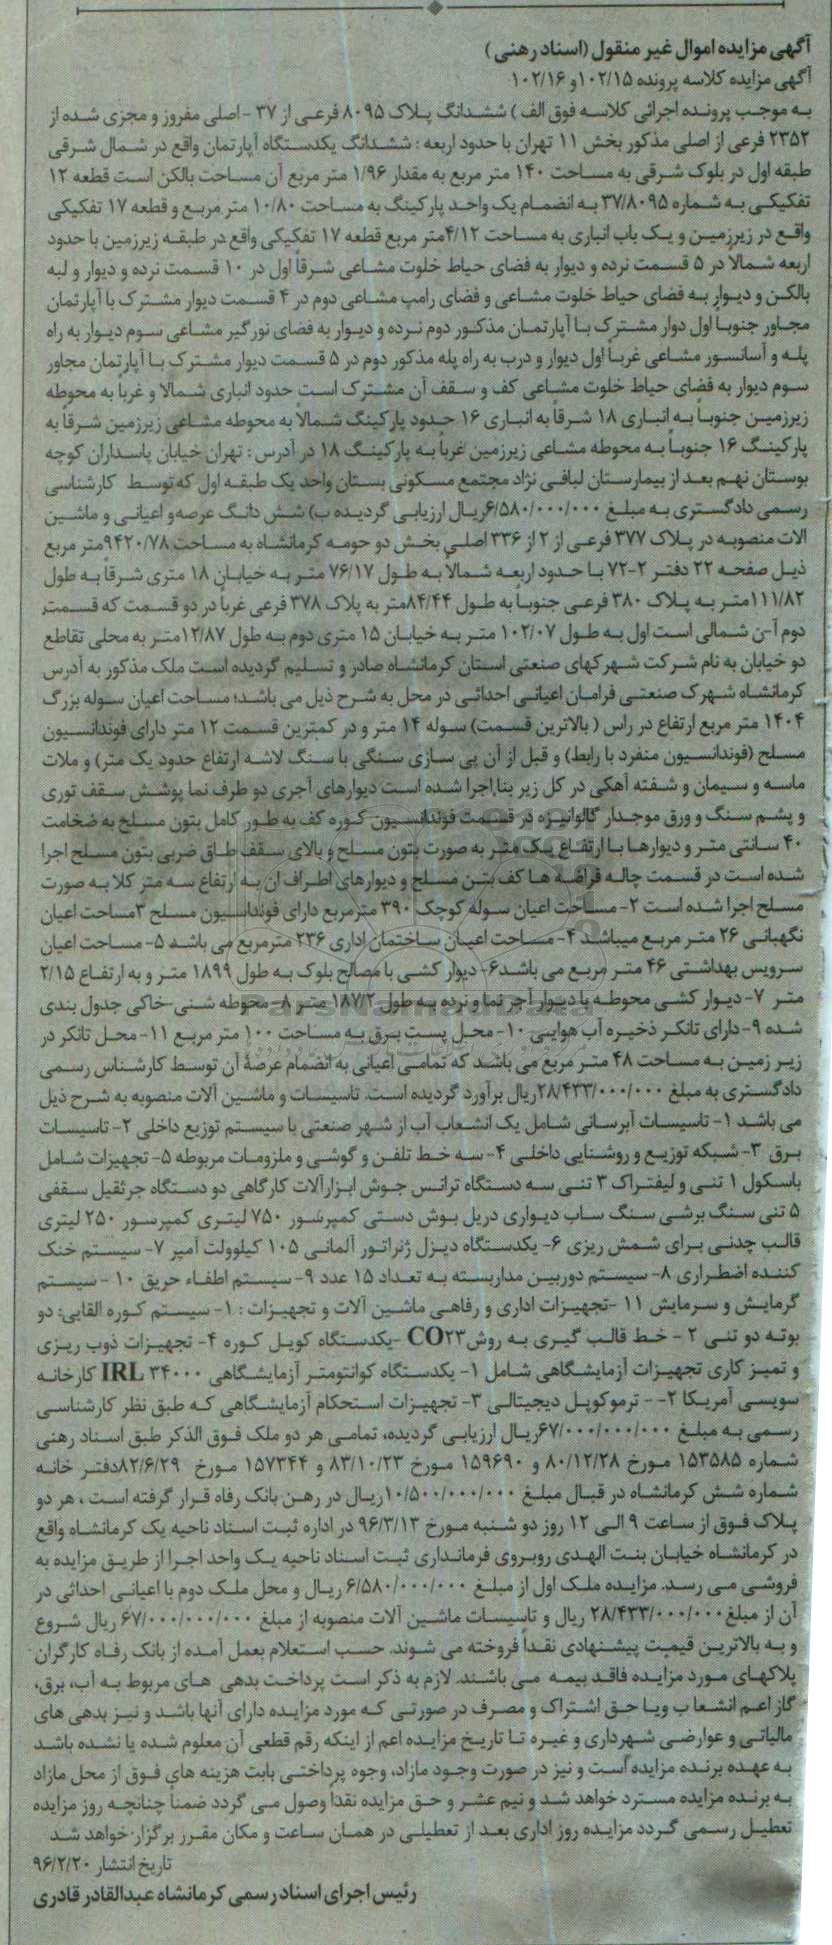 آگهی مزایده اموال غیر منقول (اسناد رهنی)
آگهی مزایده کلاسه پرونده ۱۰۲/۱۵ و ۱۰۲/۱۶
به موجب پرونده اجرائی کلاسه فوق الف) ششدانگ پلاک ۸۰۹۵ فرعی از ۳۷ - اصلی مفروز و مجزی شده از
۲۳۵۲ فرعی از اصلی مذکور بخش ۱۱ تهران با حدود اربعه : ششدانگ یکدستگاه آپارتمان واقع در شمال شرقی
طبقه اول در بلوک شرقی به مساحت ۱۴۰ متر مربع به مقدار ۱/۹۶ متر مربع آن مساحت بالکن است قطعه ۱۲
تفکیکی به شماره ۳۷/۸۰۹۵ به انضمام یک واحد پارکینگ به مساحت ۱۰/۸۰ متر مربع و قطعه ۱۷ تفکیکی
واقع در زیرزمین و یک باب انباری به مساحت ۴/۱۲متر مربع قطعه ۱۷ تفکیکی واقع در طبقه زیرزمین با حدود
اربعه شمالاً در ۵ قسمت نرده و دیوار به فضای حیاط خلوت مشاعی شرقاً اول در ۱۰ قسمت نرده و دیوار و لبه
بالکن و دیوار به فضای حیاط خلوت مشاعی و فضای رامپ مشاعی دوم در ۴ قسمت دیوار مشترک با آپارتمان
مجاور جنوباً اول دوار مشترک با آپارتمان مذکور دوم نرده و دیوار به فضای نورگیر مشاعی سوم دیوار به راه
پله و آسانسور مشاعی غرباً اول دیوار و درب به راه پله مذکور دوم در ۵ قسمت دیوار مشترک با آپارتمان مجاور
سوم دیوار به فضای حیاط خلوت مشاعی کف و سقف آن مشترک است حدود انباری شمالاً و غرباً به محوطه
زیرزمین جنوباً به انباری ۱۸ شرقاً به انباری ۱۶ حدود پارکینگ شمالاً به محوطه مشاعی زیرزمین شرقاً به
پارکینگ ۱۶ جنوباً به محوطه مشاعی زیرزمین غرباً به پارکینگ ۱۸ در آدرس : تهران خیابان پاسداران کوچه
بوستان نهم بعد از بیمارستان لبافی نژاد مجتمع مسکونی بستان واحد یک طبقه اول که توسط کارشناسی
رسمی دادگستری به مبلغ ۶/۵۸۰/۰۰۰/۰۰۰ریال ارزیابی گردیده ب) شش دانگ عرصه و اعیانی و ماشین
آلات منصوبه در پلاک ۳۷۷ فرعی از ۲ از ۳۳۶ اصلی بخش دو حومه کرمانشاه به مساحت ۹۴۲۰/۷۸متر مربع
ذیل صفحه ۲۲ دفتر ۲-۷۲ با حدود اربعه شمالاً به طول ۷۶/۱۷ متر به خیابان ۱۸ متری شرقاً به طول
۱۱۱/۸۲متر به پلاک ۳۸۰ فرعی جنوباً به طول ۸۴/۴۴متر به پلاک ۳۷۸ فرعی غرباً در دو قسمت که قسمت
دوم آ-ن شمالی است اول به طول ۱۰۲/۰۷ متر به خیابان ۱۵ متری دوم به طول ۱۲/۸۷متر به محلی تقاطع
دو خیابان به نام شرکت شهرکهای صنعتی استان کرمانشاه صادر و تسلیم گردیده است ملک مذکور به آدرس
کرمانشاه شهرک صنعتی فرامان اعیانی احداثی در محل به شرح ذیل می باشد؛ مساحت اعیان سوله بزرگ
۱۴۰۴ متر مربع ارتفاع در راس ( بالاترین قسمت) سوله ۱۴ متر و در کمترین قسمت ۱۲ متر دارای فوندانسیون
مسلح (فوندانسیون منفرد با رابط) و قبل از آن پی سازی سنگی با سنگ لاشه ارتفاع حدود یک متر) و ملات
ماسه و سیمان و شفته آهکی در کل زیر بنا,اجرا شده است دیوارهای آجری دو طرف نما پوشش سقف توری
و پشم سنگ و ورق موجدار گالوانیزه در قسمت فوندانسیون کوره کف به طور کامل بتون مسلح به ضخامت
۴۰ سانتی متر و دیوارها با ارتفاع یک متر به صورت بتون مسلح و بالای سقف طاق ضربی بتون مسلح اجرا
شده است در قسمت چاله قراضه ها کف بتن مسلح و دیوارهای اطراف ان به ارتفاع سه متر کلا به صورت
مسلح اجرا شده است ۲- مساحت اعیان سوله کوچک ۳۹۰ مترمربع دارای فونداسیون مسلح ۳مساحت اعیان
نگهبانی ۲۶ متر مربع میباشد ۴- مساحت اعیان ساختمان اداری ۲۳۶ مترمربع می باشد ۵- مساحت اعیان
سرویس بهداشتی ۴۶ متر مربع می باشد۶- دیوار کشی با مصالح بلوک به طول ۱۸۹۹ متر و به ارتفاع ۲/۱۵
متر ۷- دیوار کشی محوطه با دیوار آجر نما و نرده به طول ۱۸۷/۲ متر ۸- محوطه شنی-خاکی جدول بندی
شده ۹-دارای تانکر ذخیره آب هوایی ۱۰- محل پست برق به مساحت ۱۰۰ متر مربع ۱۱- محل تانکر در
زیر زمین به مساحت ۴۸ متر مربع می باشد که تمامی اعیانی به انضمام عرصهٔ آن توسط کارشناس رسمی
دادگستری به مبلغ ۲۸/۴۳۳/۰۰۰/۰۰۰ریال برآورد گردیده است. تاسیسات و ماشین آلات منصوبه به شرح ذیل
می باشد ۱- تاسیسات آبرسانی شامل یک انشعاب آب از شهر صنعتی با سیستم توزیع داخلی ۲- تاسیسات
برق ۳- شبکه توزیع و روشنایی داخلی ۴- سه خط تلفن و گوشی و ملزومات مربوطه ۵- تجهیزات شامل
باسکول ۱ تنی و لیفتراک ۳ تنی سه دستگاه ترانس جوش ابزارآلات کارگاهی دو دستگاه جرثقیل سقفی
۵ تنی سنگ برشی سنگ ساب دیواری دریل بوش دستی کمپرسور ۷۵۰ لیتری کمپرسور ۲۵۰ لیتری
قالب چدنی برای شمش ریزی ۶- یکدستگاه دیزل ژنراتور آلمانی ۱۰۵ کیلوولت آمپر ۷- سیستم خنک
کننده اضطراری ۸- سیستم دوربین مداربسته به تعداد ۱۵ عدد ۹- سیستم اطفاء حریق ۱۰ - سیستم
گرمایش و سرمایش ۱۱ -تجهیزات اداری و رفاهی ماشین آلات و تجهیزات : ۱- سیستم کوره القایی: دو
بوته دو تنی ۲ - خط قالب گیری به روش CO۲۳ -یکدستگاه کویل کوره ۴- تجهیزات ذوب ریزی
و تمیز کاری تجهیزات آزمایشگاهی شامل ۱- یکدستگاه کوانتومتر آزمایشگاهی IRL ۳۴۰۰۰ کارخانه
سویسی آمریکا ۲-- ترموکوپل دیجیتالی ۳- تجهیزات استحکام آزمایشگاهی که طبق نظر کارشناسی
رسمی به مبلغ ۶۷/۰۰۰/۰۰۰/۰۰۰ریال ارزیابی گردیده، تمامی هر دو ملک فوق الذکر طبق اسناد رهنی
شماره ۱۵۳۵۸۵ مورخ ۸۰/۱۲/۲۸ و ۱۵۹۶۹۰ مورخ ۸۳/۱۰/۲۳ و ۱۵۷۳۴۴ مورخ ۸۲/۶/۲۹دفتر خانه
شماره شش کرمانشاه در قبال مبلغ ۱۰/۵۰۰/۰۰۰/۰۰۰ریال در رهن بانک رفاه قرار گرفته است ، هر دو
پلاک فوق از ساعت ۹ الی ۱۲ روز دو شنبه مورخ ۹۶/۳/۱۳ در اداره ثبت اسناد ناحیه یک کرمانشاه واقع
در کرمانشاه خیابان بنت الهدی روبروی فرمانداری ثبت اسناد ناحیه یک واحد اجرا از طریق مزایده به
فروشی می رسد. مزایده ملک اول از مبلغ ۶/۵۸۰/۰۰۰/۰۰۰ ریال و محل ملک دوم با اعیانی احداثی در
آن از مبلغ۲۸/۴۳۳/۰۰۰/۰۰۰ ریال و تاسیسات ماشین آلات منصوبه از مبلغ ۶۷/۰۰۰/۰۰۰/۰۰۰ ریال شروع
و به بالاترین قیمت پیشنهادی نقداً فروخته می شوند. حسب استعلام بعمل آمده از بانک رفاه کارگران
پلاکهای مورد مزایده فاقد بیمه می باشند. لازم به ذکر است پرداخت بدهی های مربوط به آب، برق،
گاز اعم انشعا ب ویا حق اشتراک و مصرف در صورتی که مورد مزایده دارای آنها باشد و نیز بدهی های
مالیاتی و عوارضی شهرداری و غیره تا تاریخ مزایده اعم از اینکه رقم قطعی آن معلوم شده یا نشده باشد
به عهده برنده مزایده است و نیز در صورت وجود مازاد، وجوه پرداختی بابت هزینه های فوق از محل مازاد
به برنده مزایده مسترد خواهد شد و نیم عشر و حق مزایده نقداً وصول می گردد ضمناً چنانچه روز مزایده
تعطیل رسمی گردد مزایده روز اداری بعد از تعطیلی در همان ساعت و مکان مقرر برگزار خواهد شد
تاریخ انتشار ۹۶/۲/۲۰
رئیس اجرای اسناد رسمی کرمانشاه عبدالقادر قادری